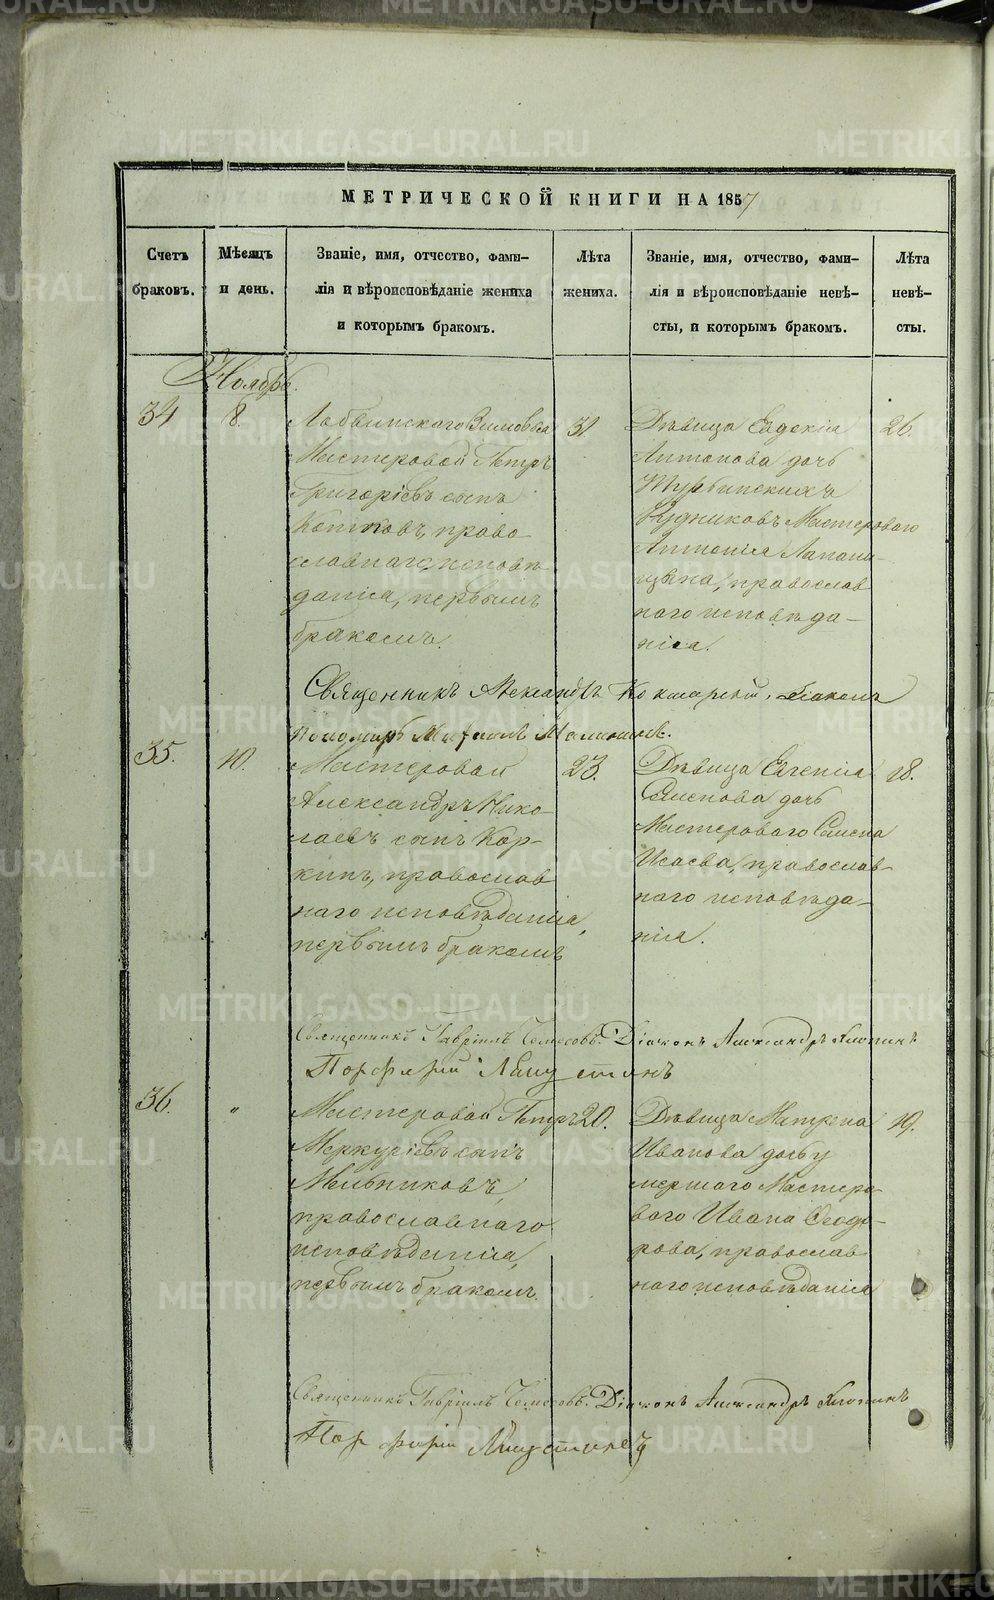 МЕТРИЧЕСКОЙ КНИГИ НА 1857
Счетъ браковъ.
Мѣсяцъ и день.
Званіе, имя, отчество, фами-
лія и вѣроисповѣданіе жениха
и которымъ бракомъ.
Лѣта жениха.
Званіе, имя, отчество, фами-
лія и вѣроисповѣданіе невѣ-
сты, и которымъ бракомъ.
Лѣта невѣ-
сты.
Ноябрь.
34
8.
Лобвинскаго Зимовья
Мастеровой Петръ
Григоріевъ сынъ
право
славнаго исповѣ
данія, первымъ
бракомъ.
31
Дѣвица Евдокія
Антонова дочь
Турьинскихъ
Рудниковъ Мастероваго
Антонія
православ
наго исповѣда-
нія.
26.
Священникъ Александръ Діаконъ
Пономарь
35.
10.
Мастеровой
Александръ Нико-
лаевъ сынъ Кор-
кинъ, православ
наго исповѣданія,
первымъ бракомъ
23.
Дѣвица Евгенія
Семенова дочь
Мастероваго Семена
Исаева, православ-
наго исповѣда-
нія.
18.
Священникъ Гавріилъ Діаконъ Александръ
Порфирій
36.
"
Мастеровой Петръ
Меркуріевъ сынъ
Мельниковъ,
православнаго
исповѣданія,
первымъ бракомъ.
20.
Дѣвица Матрена
Иванова дочь у
мершаго Мастеро-
ваго Ивана Ѳеодо-
рова, православ-
наго исповѣданія
19.
Священникъ Гавріилъ Діаконъ Александръ
Порфирій
METRIKI.GASO-URAL.RU